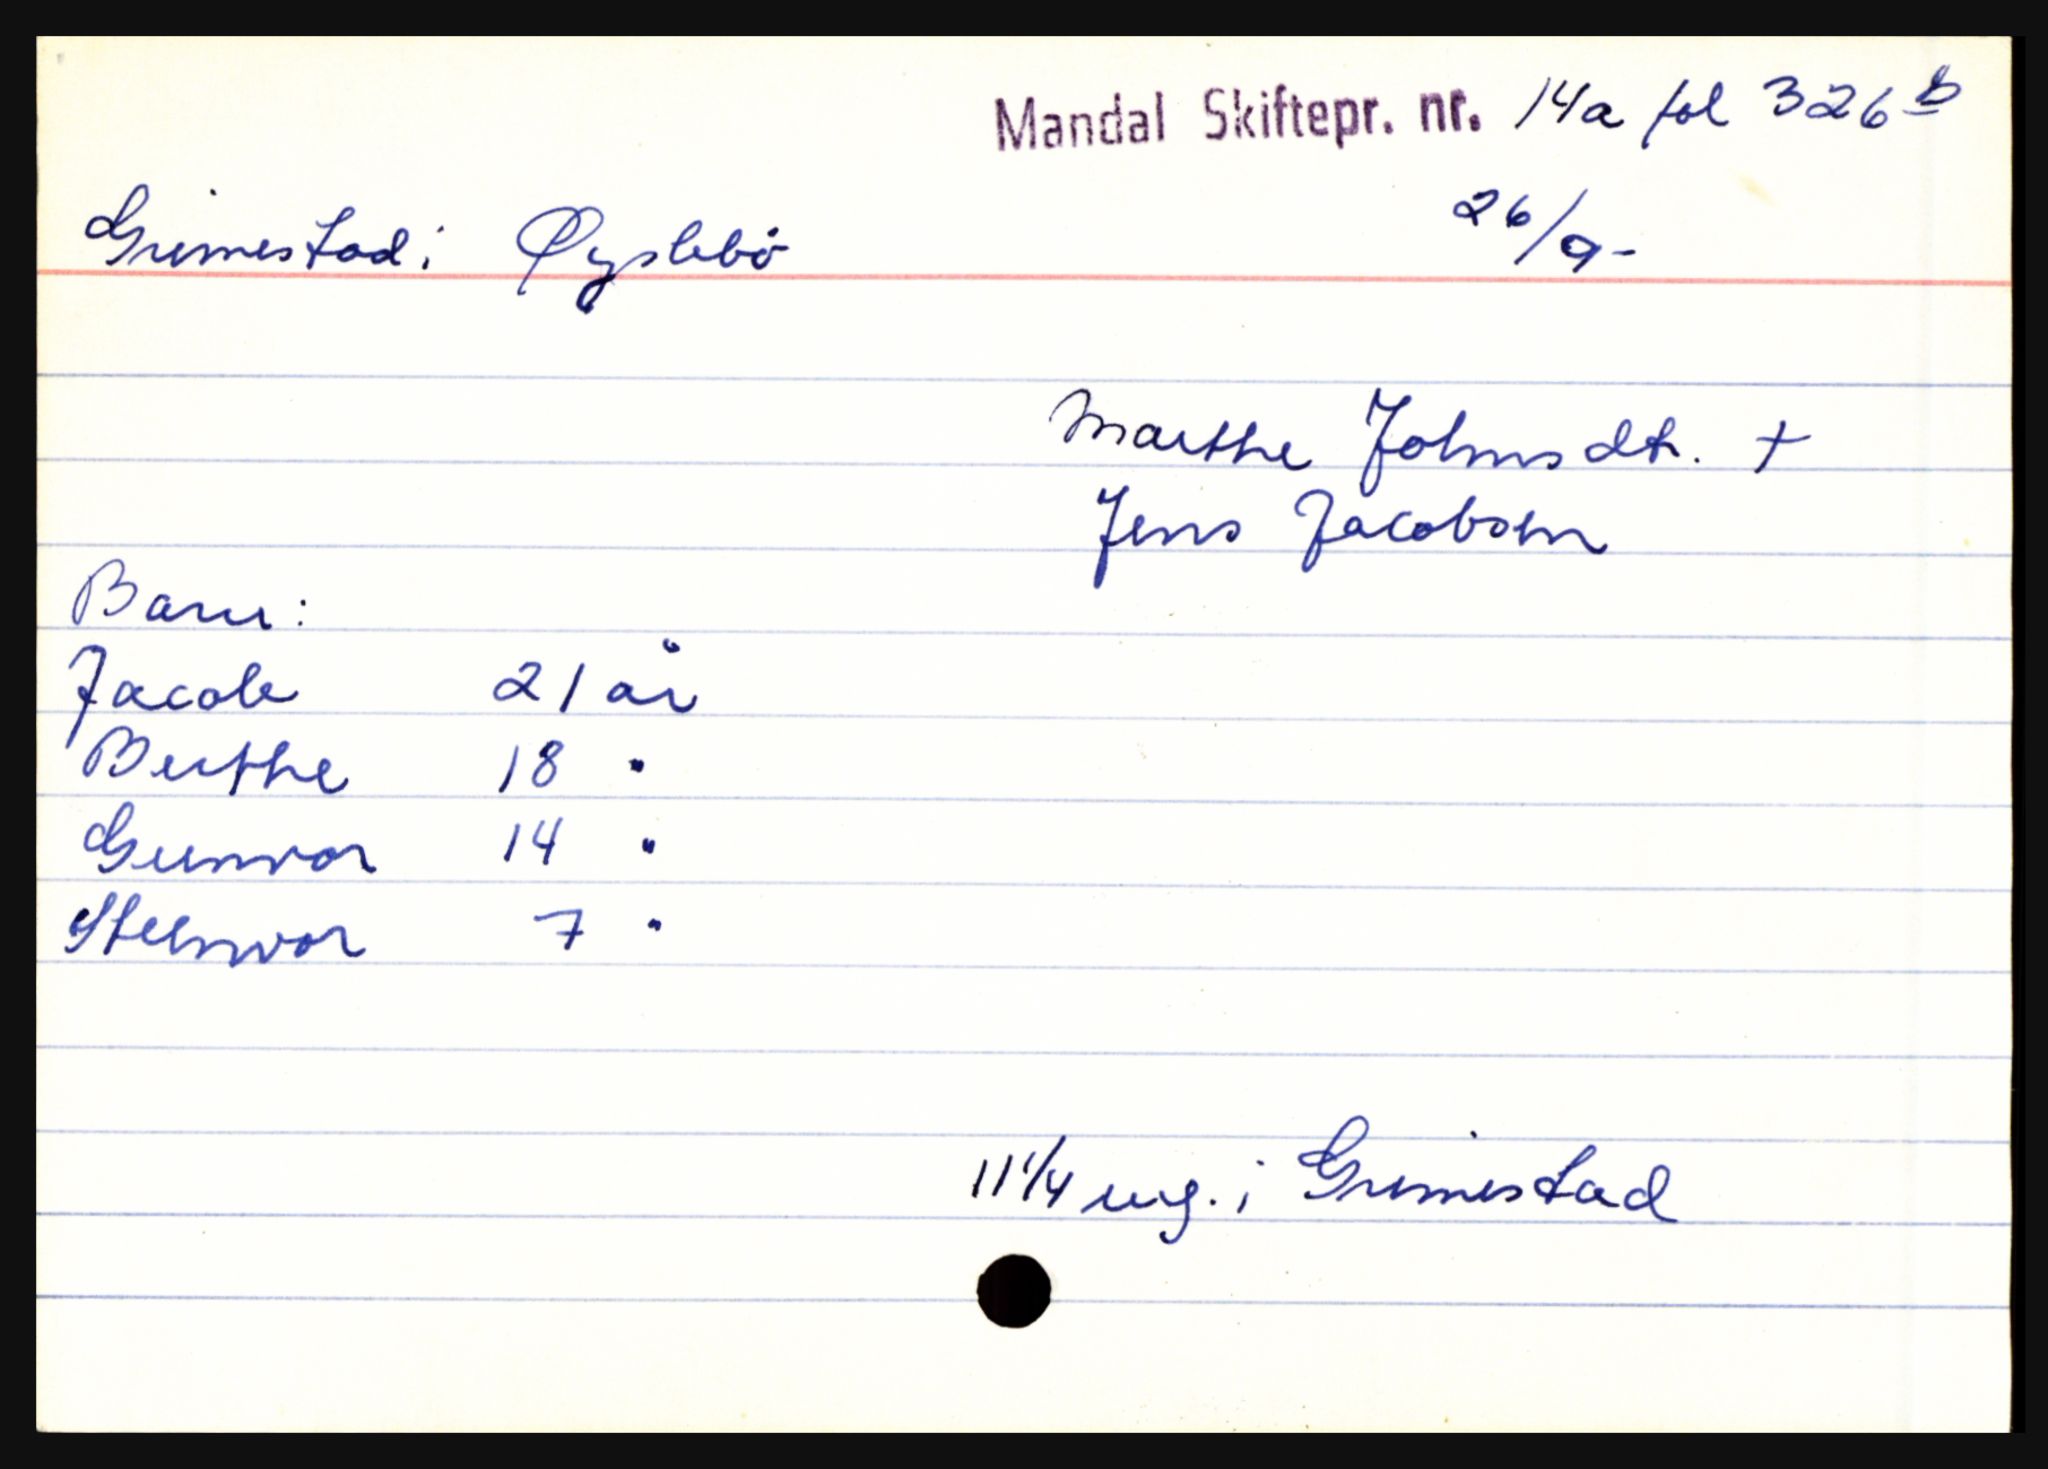 Mandal Skiftepr. nr. 14a fol 326 b
Grimestad i Øyslebö 26/9-
Marthe Johnsdtr. +
Jens Jacobsen
Barn:
Jacob 21 år
Berthe 18 "
Gunvor 14 "
Stenvor 7 "
11 1/4 eng. i Grimestad